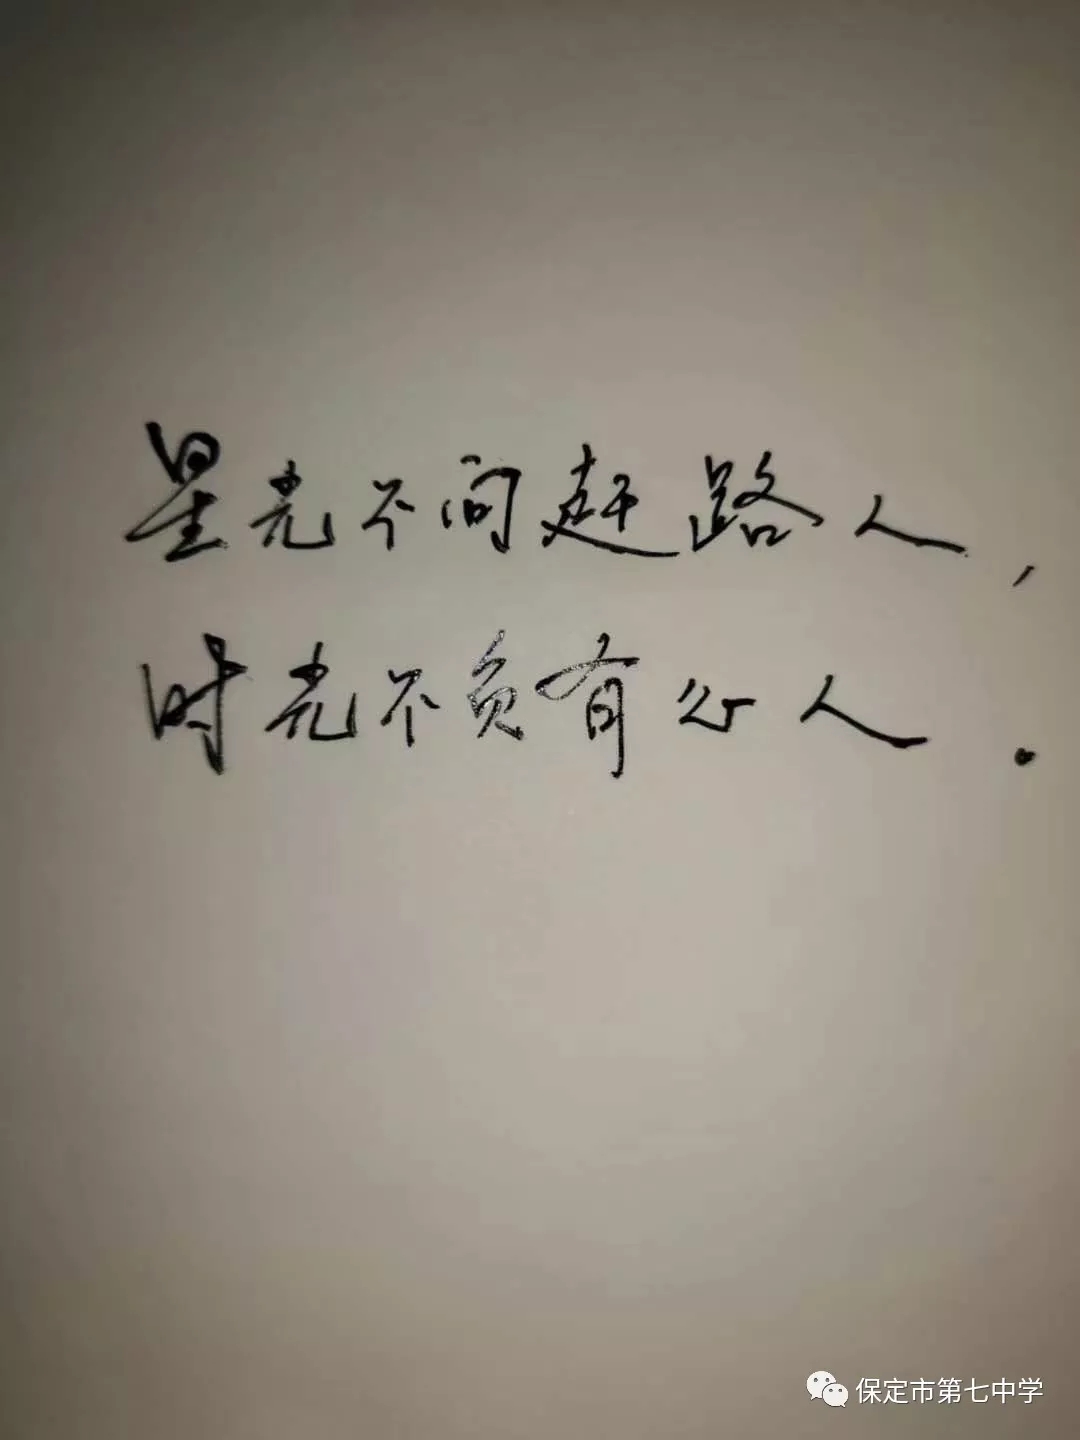 星光不问赶路人,
时光不负有心人.
保定市第七中学